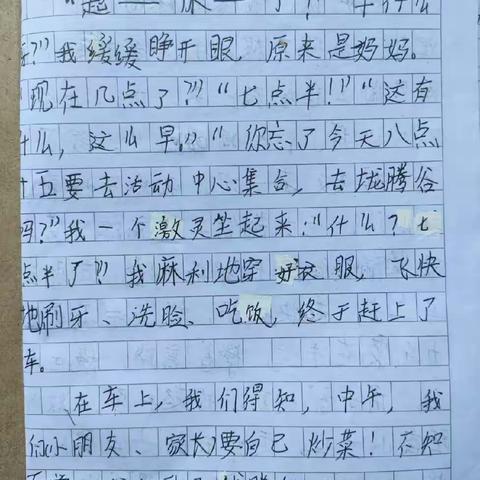 "起——床——了！""干什么
呀？"我缓缓睁开眼，原来是妈妈。
"现在几点了？""七点半！""这有
什么，这么早。""你忘了今天八点
十五要去活动中心集合，去垅腾谷
吗？"我一个激灵坐起来："什么？七
点半了？"我麻利地穿好衣服，飞快
地刷牙、洗脸、吃饭，终于赶上了
车。
在车上，我们得知，中午，我
们小朋友、家长要自己炒菜！不知